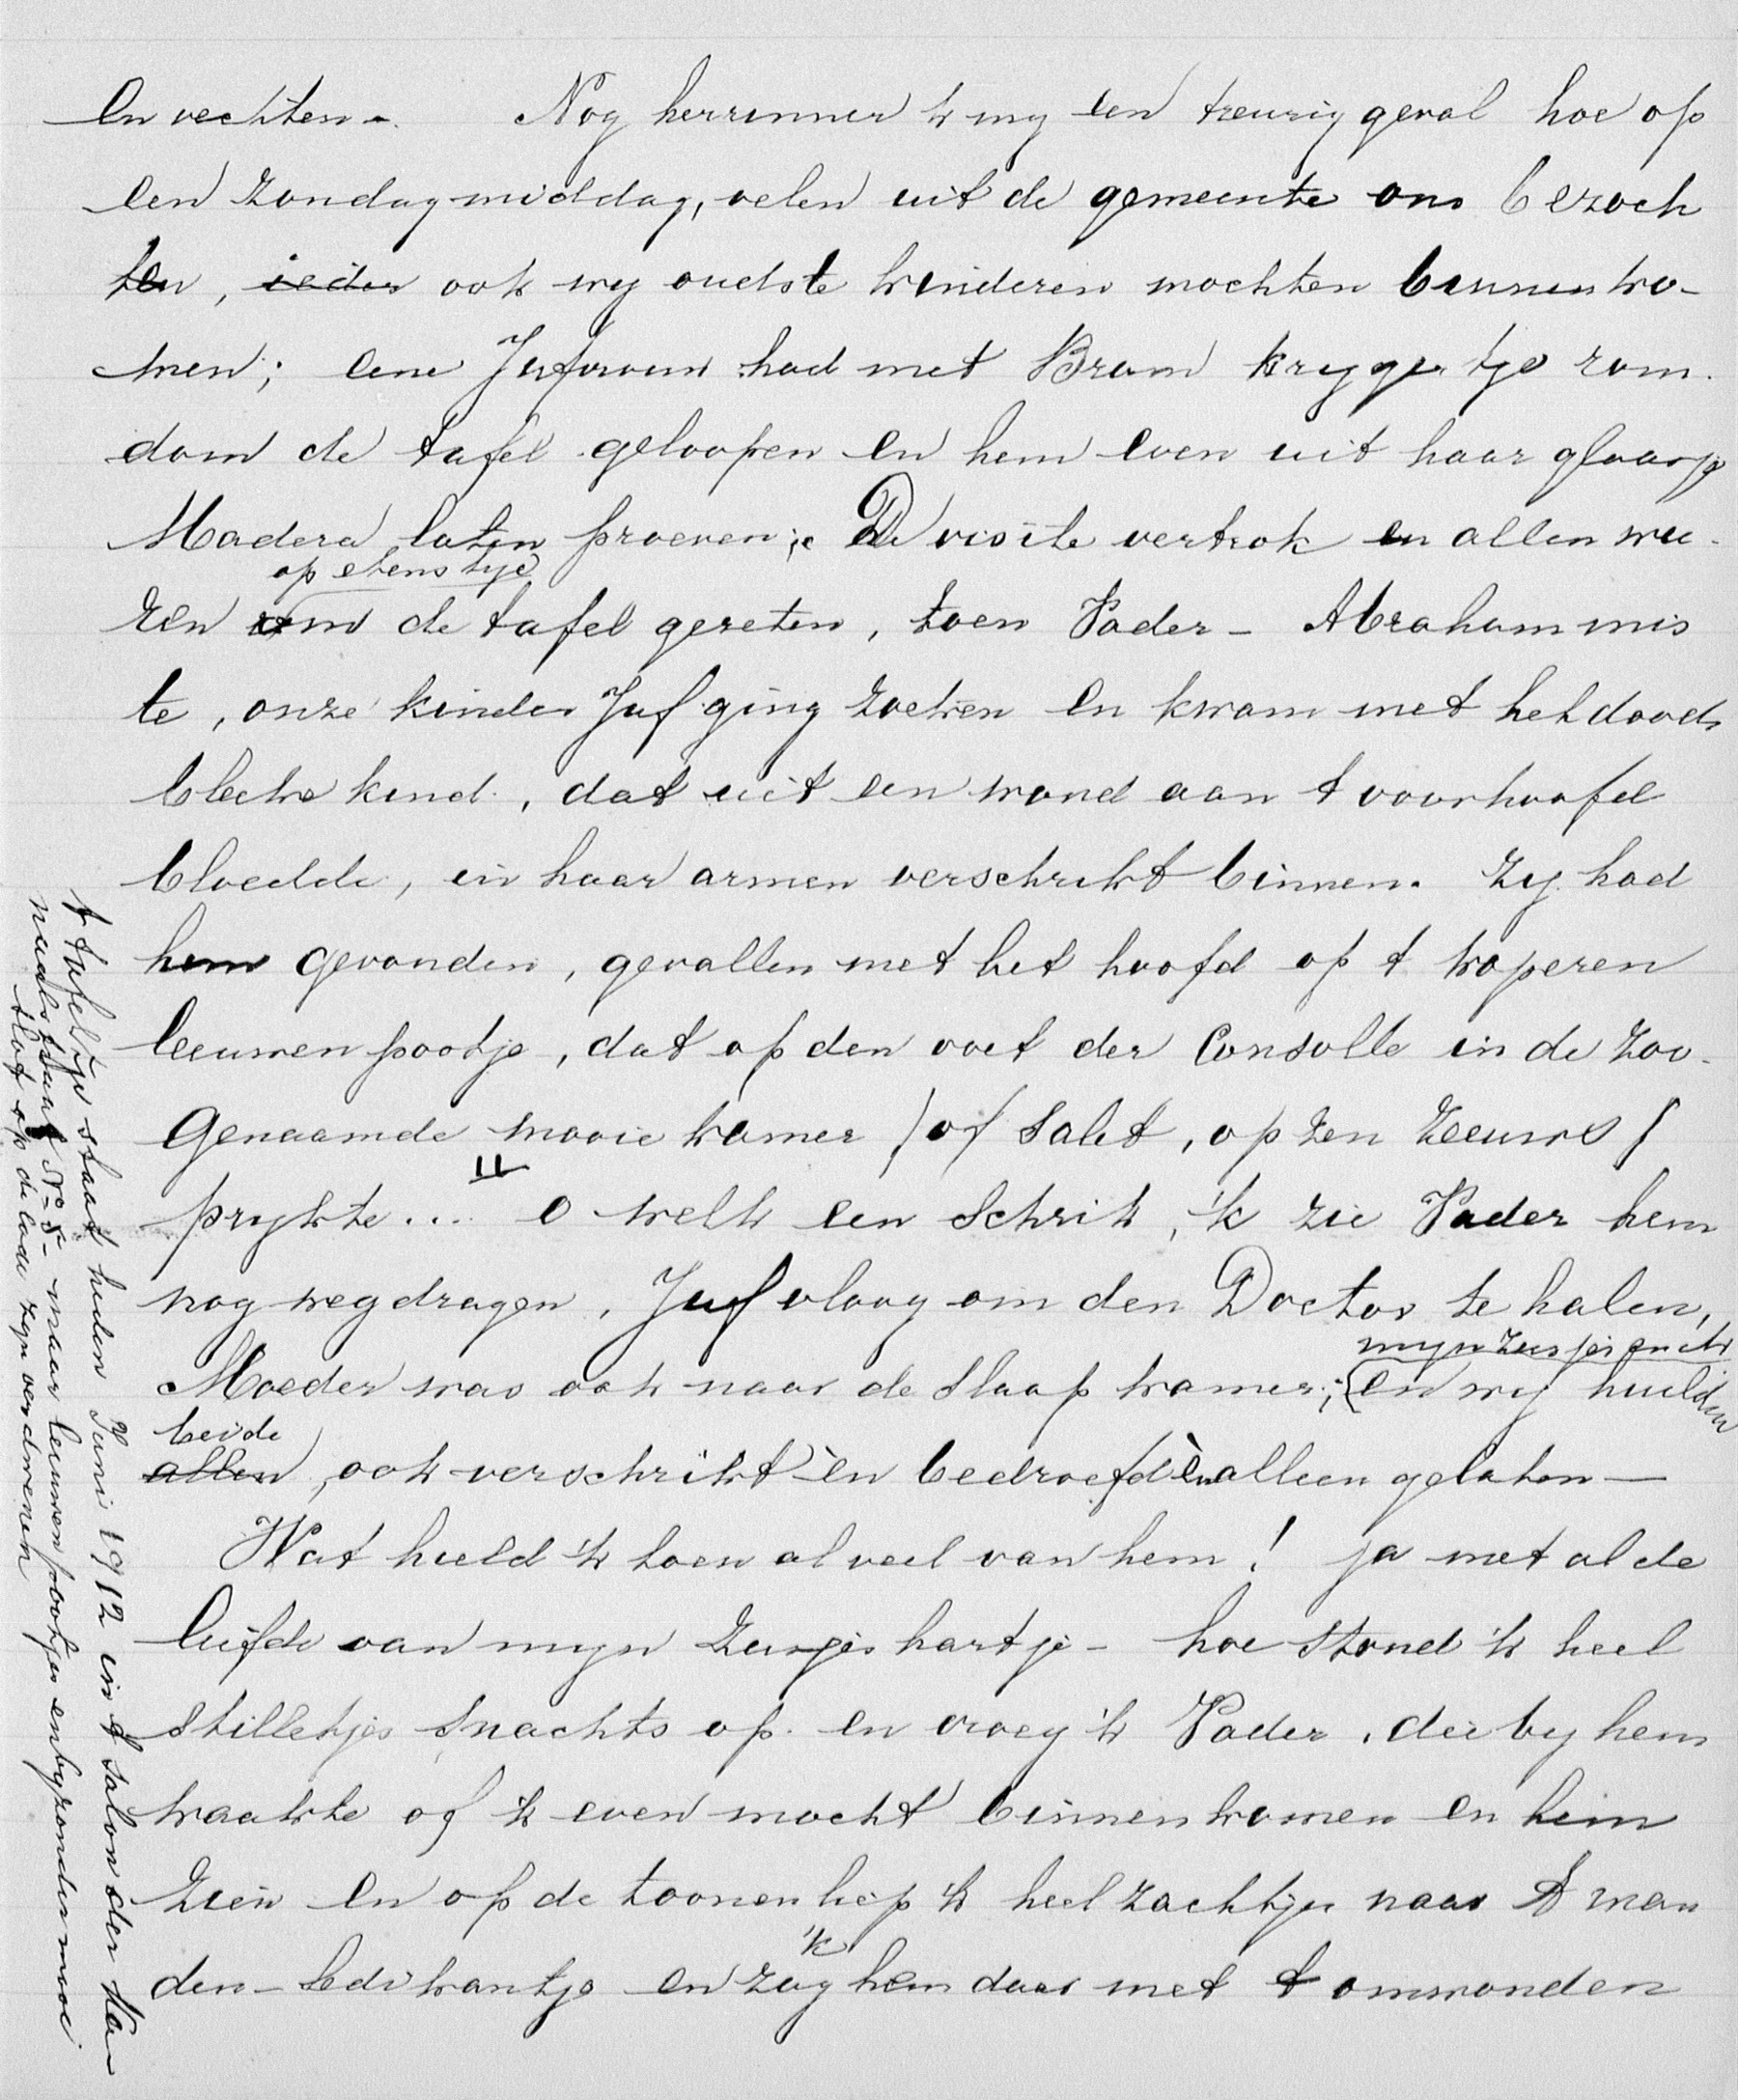 en vechten. Nog herrinner 'k my een treurig geval hoe op
een zondagmiddag, velen uit de gemeente ons bezoch
ten, ieder ook wy oudste kinderen mochten binnen ko-
men; eene Jufvrouw had met Bram krygertje ron-
dom de tafel geloopen en hem even uit haar glaasje
Madera laten proeven; De visite vertrok en allen wa-
op etenstyd
ren om de tafel gezeten, toen Vader - Abraham mis
te, onze kinder Juf ging zoeken en kwam met het doods
bleeke kind, dat uit een wond aan 't voorhoofd
bloedde, in haar armen verschrikt binnen. Zy had
hem gevonden, gevallen met het hoofd op 't koperen
leeuwenpootje, dat op den voet der Consolle in de zoo-
genaamde mooie kamer / of Salet, op zen Zeeuws /
prykte ... o welk een schrik, 'k zie Vader hem
nog wegdragen, Juf vloog om den Doctor te halen,
myn zusje en ik
Moeder was ook naar de slaapkamer; en wy huilden
beide
allen, ook verschrikt èn bedroefd èn alleen gelaten —
Wat hield 'k toen al veel van hem! ja met al de
liefde van myn zusjes hartje - hoe stond 'k heel
stilletjes snachts op en vroeg 'k Vader, die by hem
waakte of 'k even mocht binnenkomen en hem
zien en op de toonen liep 'k heel zachtjes naar 't man
'k
den - ledikantje en zag hem daar met 't omwonden
't tafeltje staat heden Juni 1912 in 't salon der
No 8 - maar leeuwenpootjes en byzonder mooi
slot op de lade zyn verdwenen